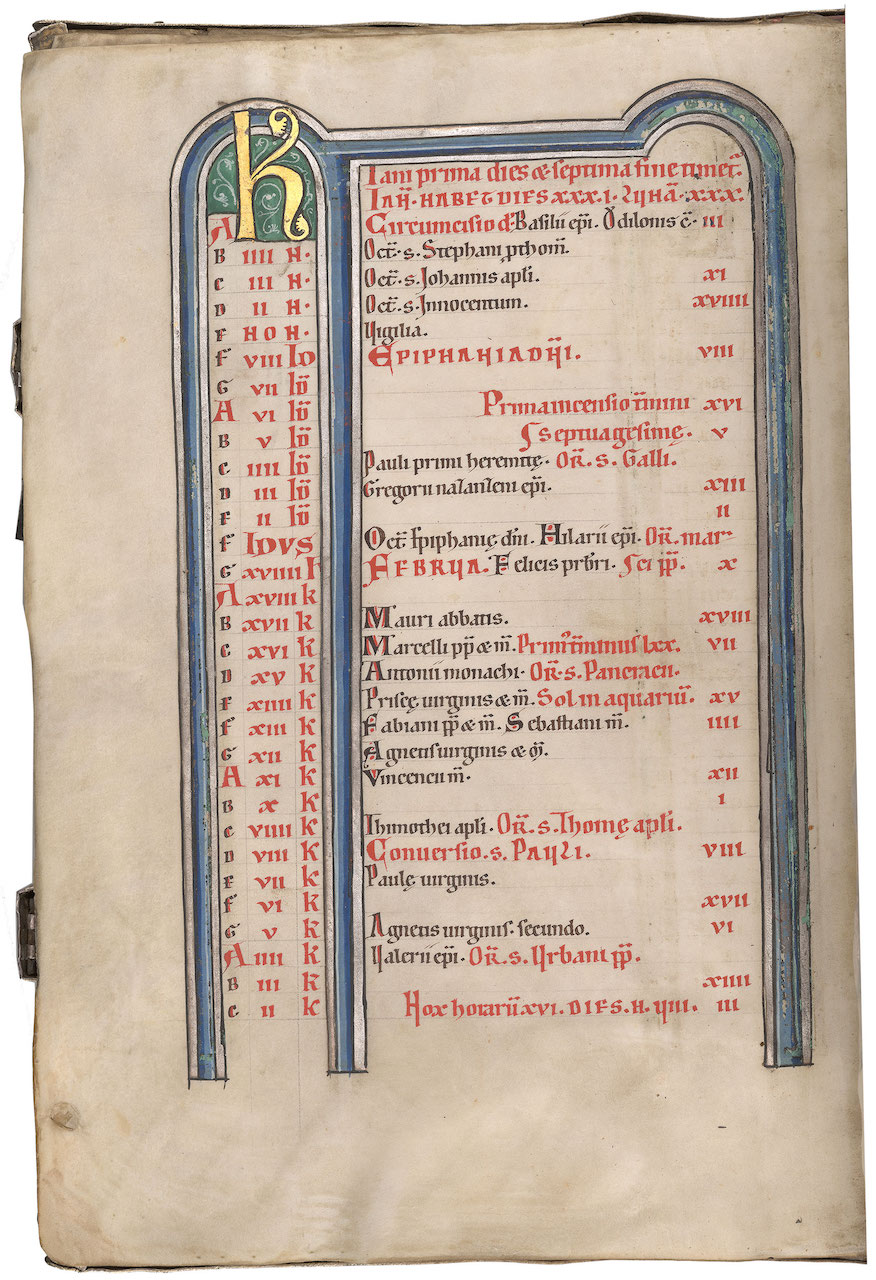 K
Iani prima dies & septima fine timet̄.
IAN̄. HABET DIES XXXI. LUNĀ. XXX.
A Circumcisio d̄. Basilii ep̄i. Odilonis c̄. iii
B iiii N. Oct̄. s. Stephani ꝓthom̄.
C iii N. Oct̄. s. Johannis apl̄i. xi
D ii N. Oct̄. s. Innocentum. xviiii
E NON. Vigilia.
F viii Id EPIPHANIA DN̄I. viii
G vii Id̄
A vi Id̄ Prima incensio t̄mini xvi
B v Id̄ septuagesimę. v
C iiii Id̄ Pauli primi heremitę. Or̄. s. Galli.
D iii Id̄ Gregorii nazanzeni ep̄i. xiii
E ii Id̄ ii
F IDVS Oct̄ Epiphanię dn̄i. Hilarii ep̄i. Or̄. mar
G xviiii k FEBRUA. Felicis prb̄ri. Sci pp̄. x
A xviii k
B xvii k Mauri abbatis. xviii
C xvi k Marcelli pp̄ & m̄. Prim' t̄minus lxx. vii
D xv k Antonii monachi. Or̄. s. Pancracii.
E xiiii k Priscę uirginis & m̄. Sol in aquariū. xv
F xiii k Fabiani pp̄ & m̄. Sebastiani m̄. iiii
G xii k Agnetis uirginis & m̄.
A xi k Vincencii m̄. xii
B x k i
C viiii k Thimothei apl̄i. Or̄. s. Thomę apl̄i.
D viii k Conuersio. s. PAULI. viii
E vii k Paulę uirginis.
F vi k xvii
G v k Agnetis uirginis. secundo. vi
A iiii k Valerii ep̄i. Or̄. s. Urbani pp̄.
B iii k xiiii
C ii k Nox horarū xvi. DIES. H. viii. iii